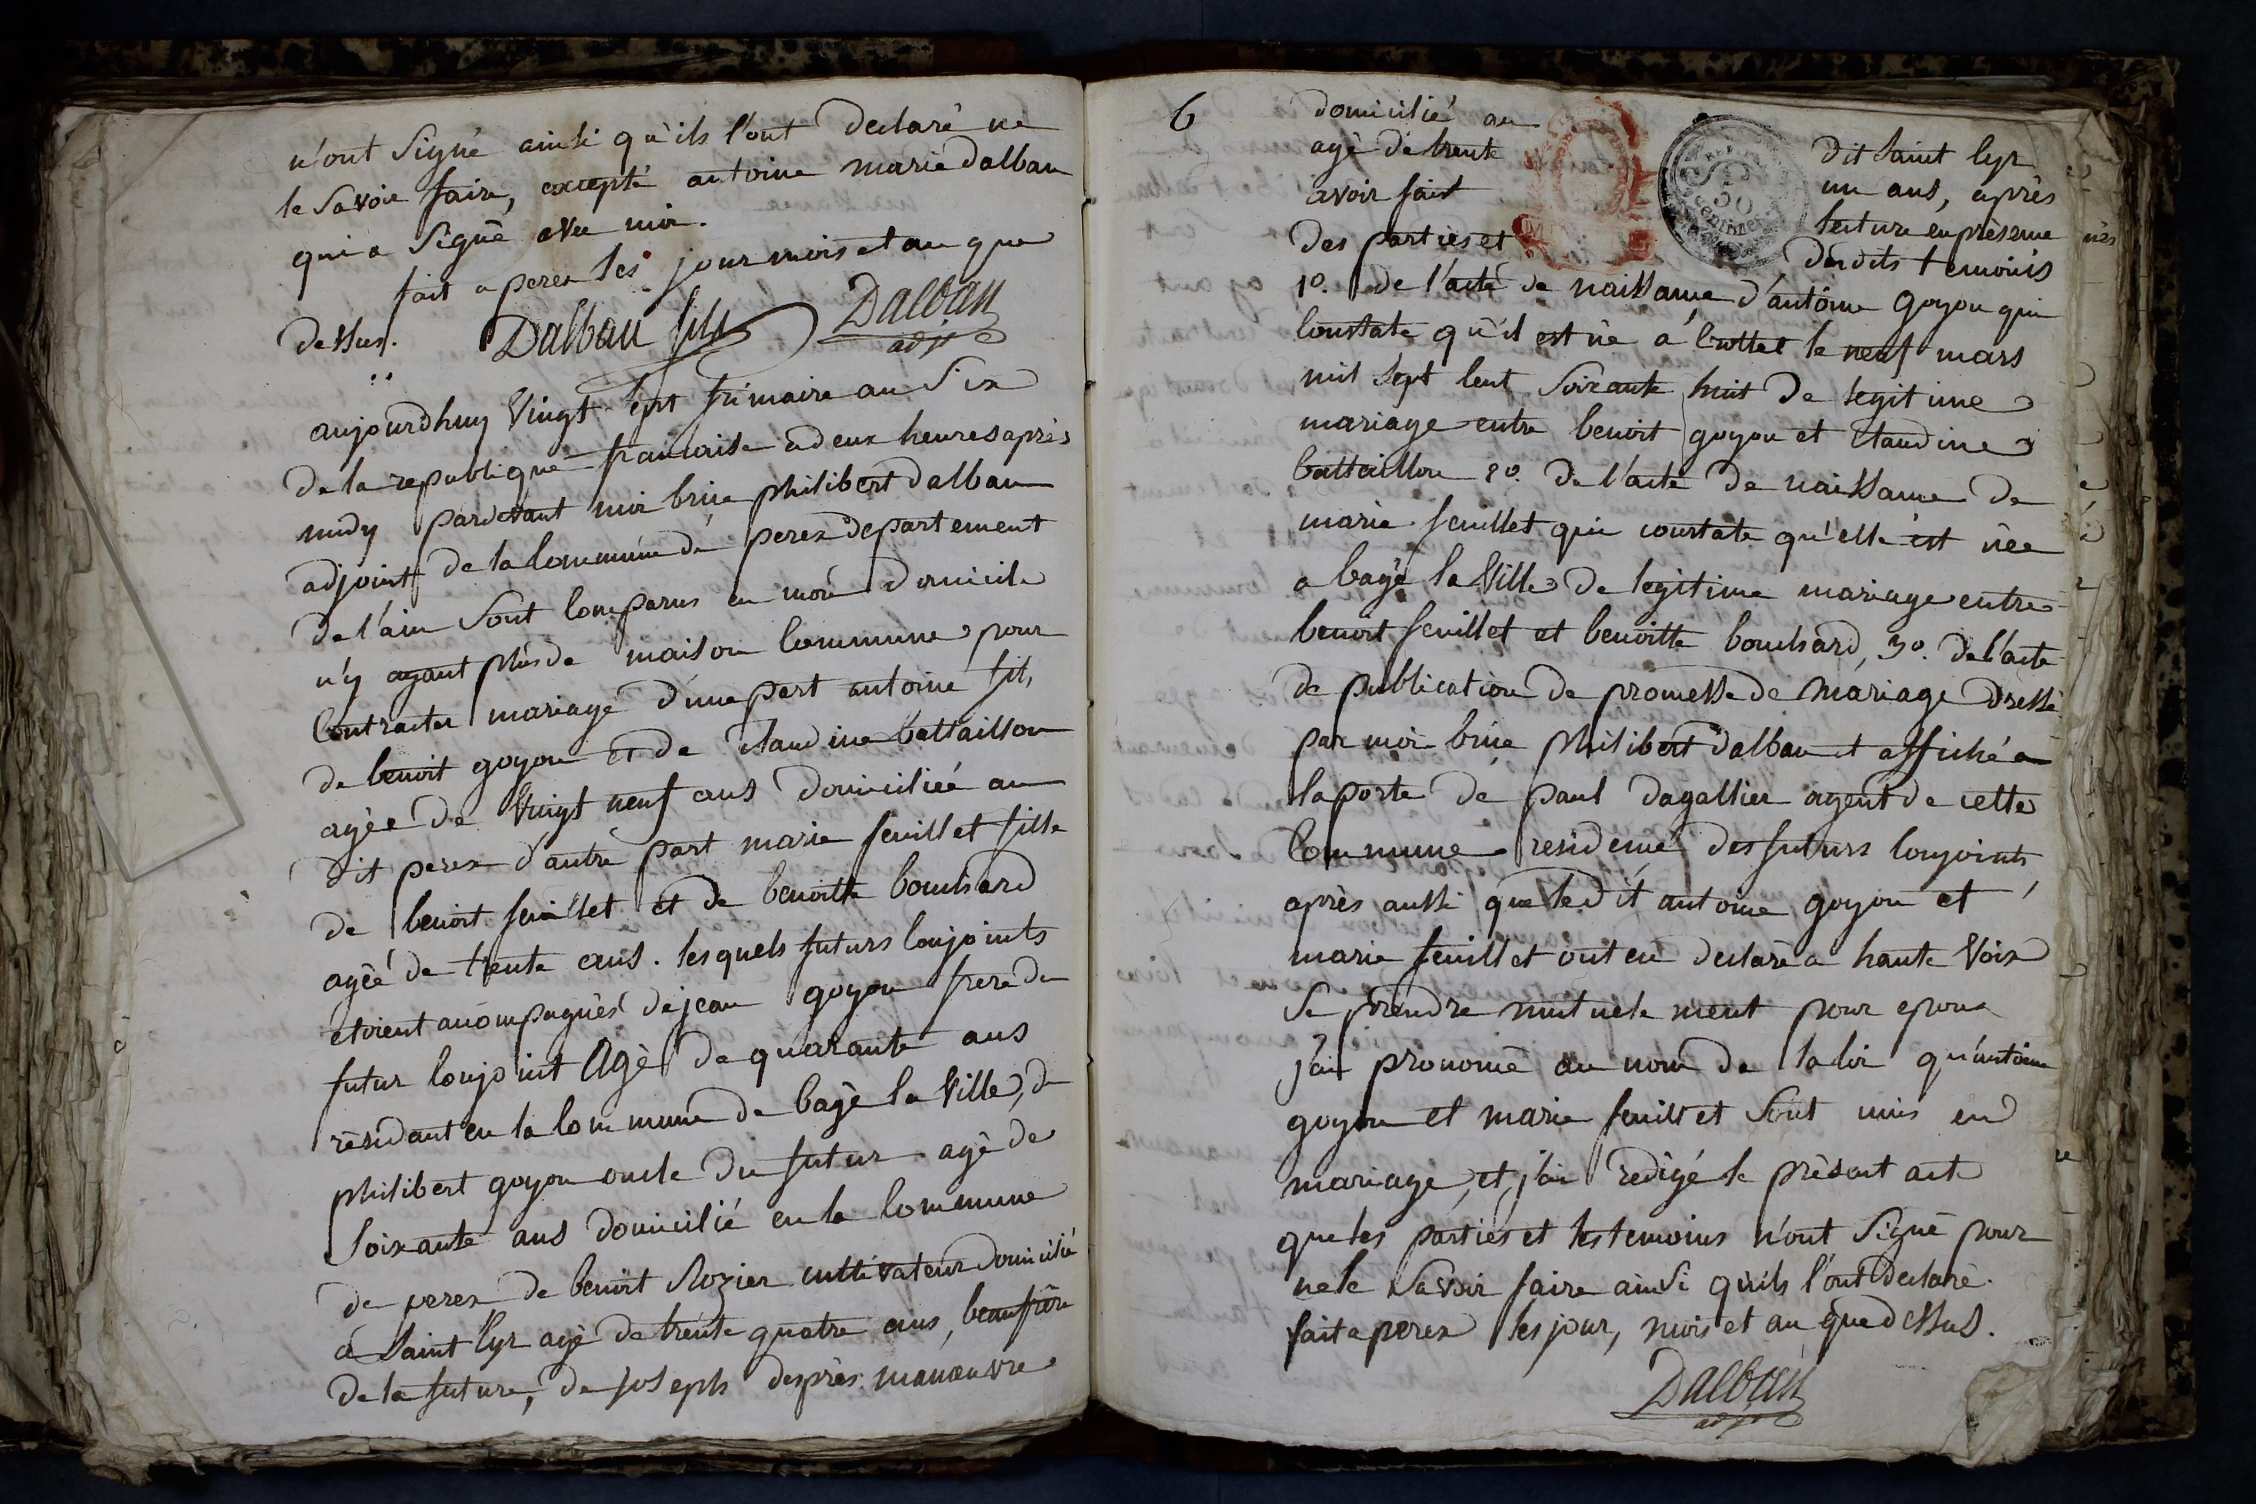 n'ont signé ainsi qu'ils l'ont declaré ne
le savoir faire, excepté antoine marie dalban
qui a signé avec moi.
fait a perex les jour mois et an que
dessus. Dalban fils Dalban
adjt
aujourdhuy vingt sept frimaire an six
de la republique francoise a deux heures après
midy pardevant moi brice philibert dalban
adjoint de la commune de perex departement
de l'ain sont comparus en mon domicile
n'y ayant plus de maison commune pour
contracter mariage d'une part antoine fils
de benoit goyon et de claudine battaillon
agée de vingt neuf ans domiciliée au
dit perex d'autre part marie feuillet fille
de benoit feuillet et de benoitte bouchard
agée de trente ans. lesquels futurs conjoints
etoient accompagnés de jean goyon frere du
futur conjoint agé de quarante ans
résidant en la commune de bagé la ville, de
philibert goyon oncle du futur agé de
soixante ans domicilié en la commune
de perex de benoit Rozier cultivateur domicilié
à saint Cyr agé de trente quatre ans, beaufrere
de la future, de joseph desprès manœuvre
6
domicilié au dit saint Cyr
agé de trente un ans, après
avoir fait lecture en présence
des parties et desdits temoins
1º. de l'acte de naissance d'antoine goyon qui
constate qu'il est né à Crottet le neuf mars
mil sept cent soixante huit de legitime
mariage entre benoit goyon et Claudine
battaillon 2º. de l'acte de naissance de
marie feuillet qui constate qu'elle est née
a bagé la ville de legitime mariage entre
benoit feuillet et benoitte bouchard, 3º. de l'acte
de publication de promesse de mariage dressé
par moi brice philibert dalban et affiché a
la porte de paul dagallier agent de cette
Commune residence des futurs conjoints
après aussi que ledit antoine goyon et
marie feuillet ont eu declaré a haute voix
se prendre mutuelement pour epoux
j'ai prononcé au nom de la loi qu'antoine
goyon et marie feuillet sont unis en
mariage, et j'ai redigé le présent acte
que les parties et les temoins n'ont signé pour
ne le savoir faire ainsi qu'ils l'ont declaré.
fait a perex les jour, mois et an que dessus.
Dalban
adjt